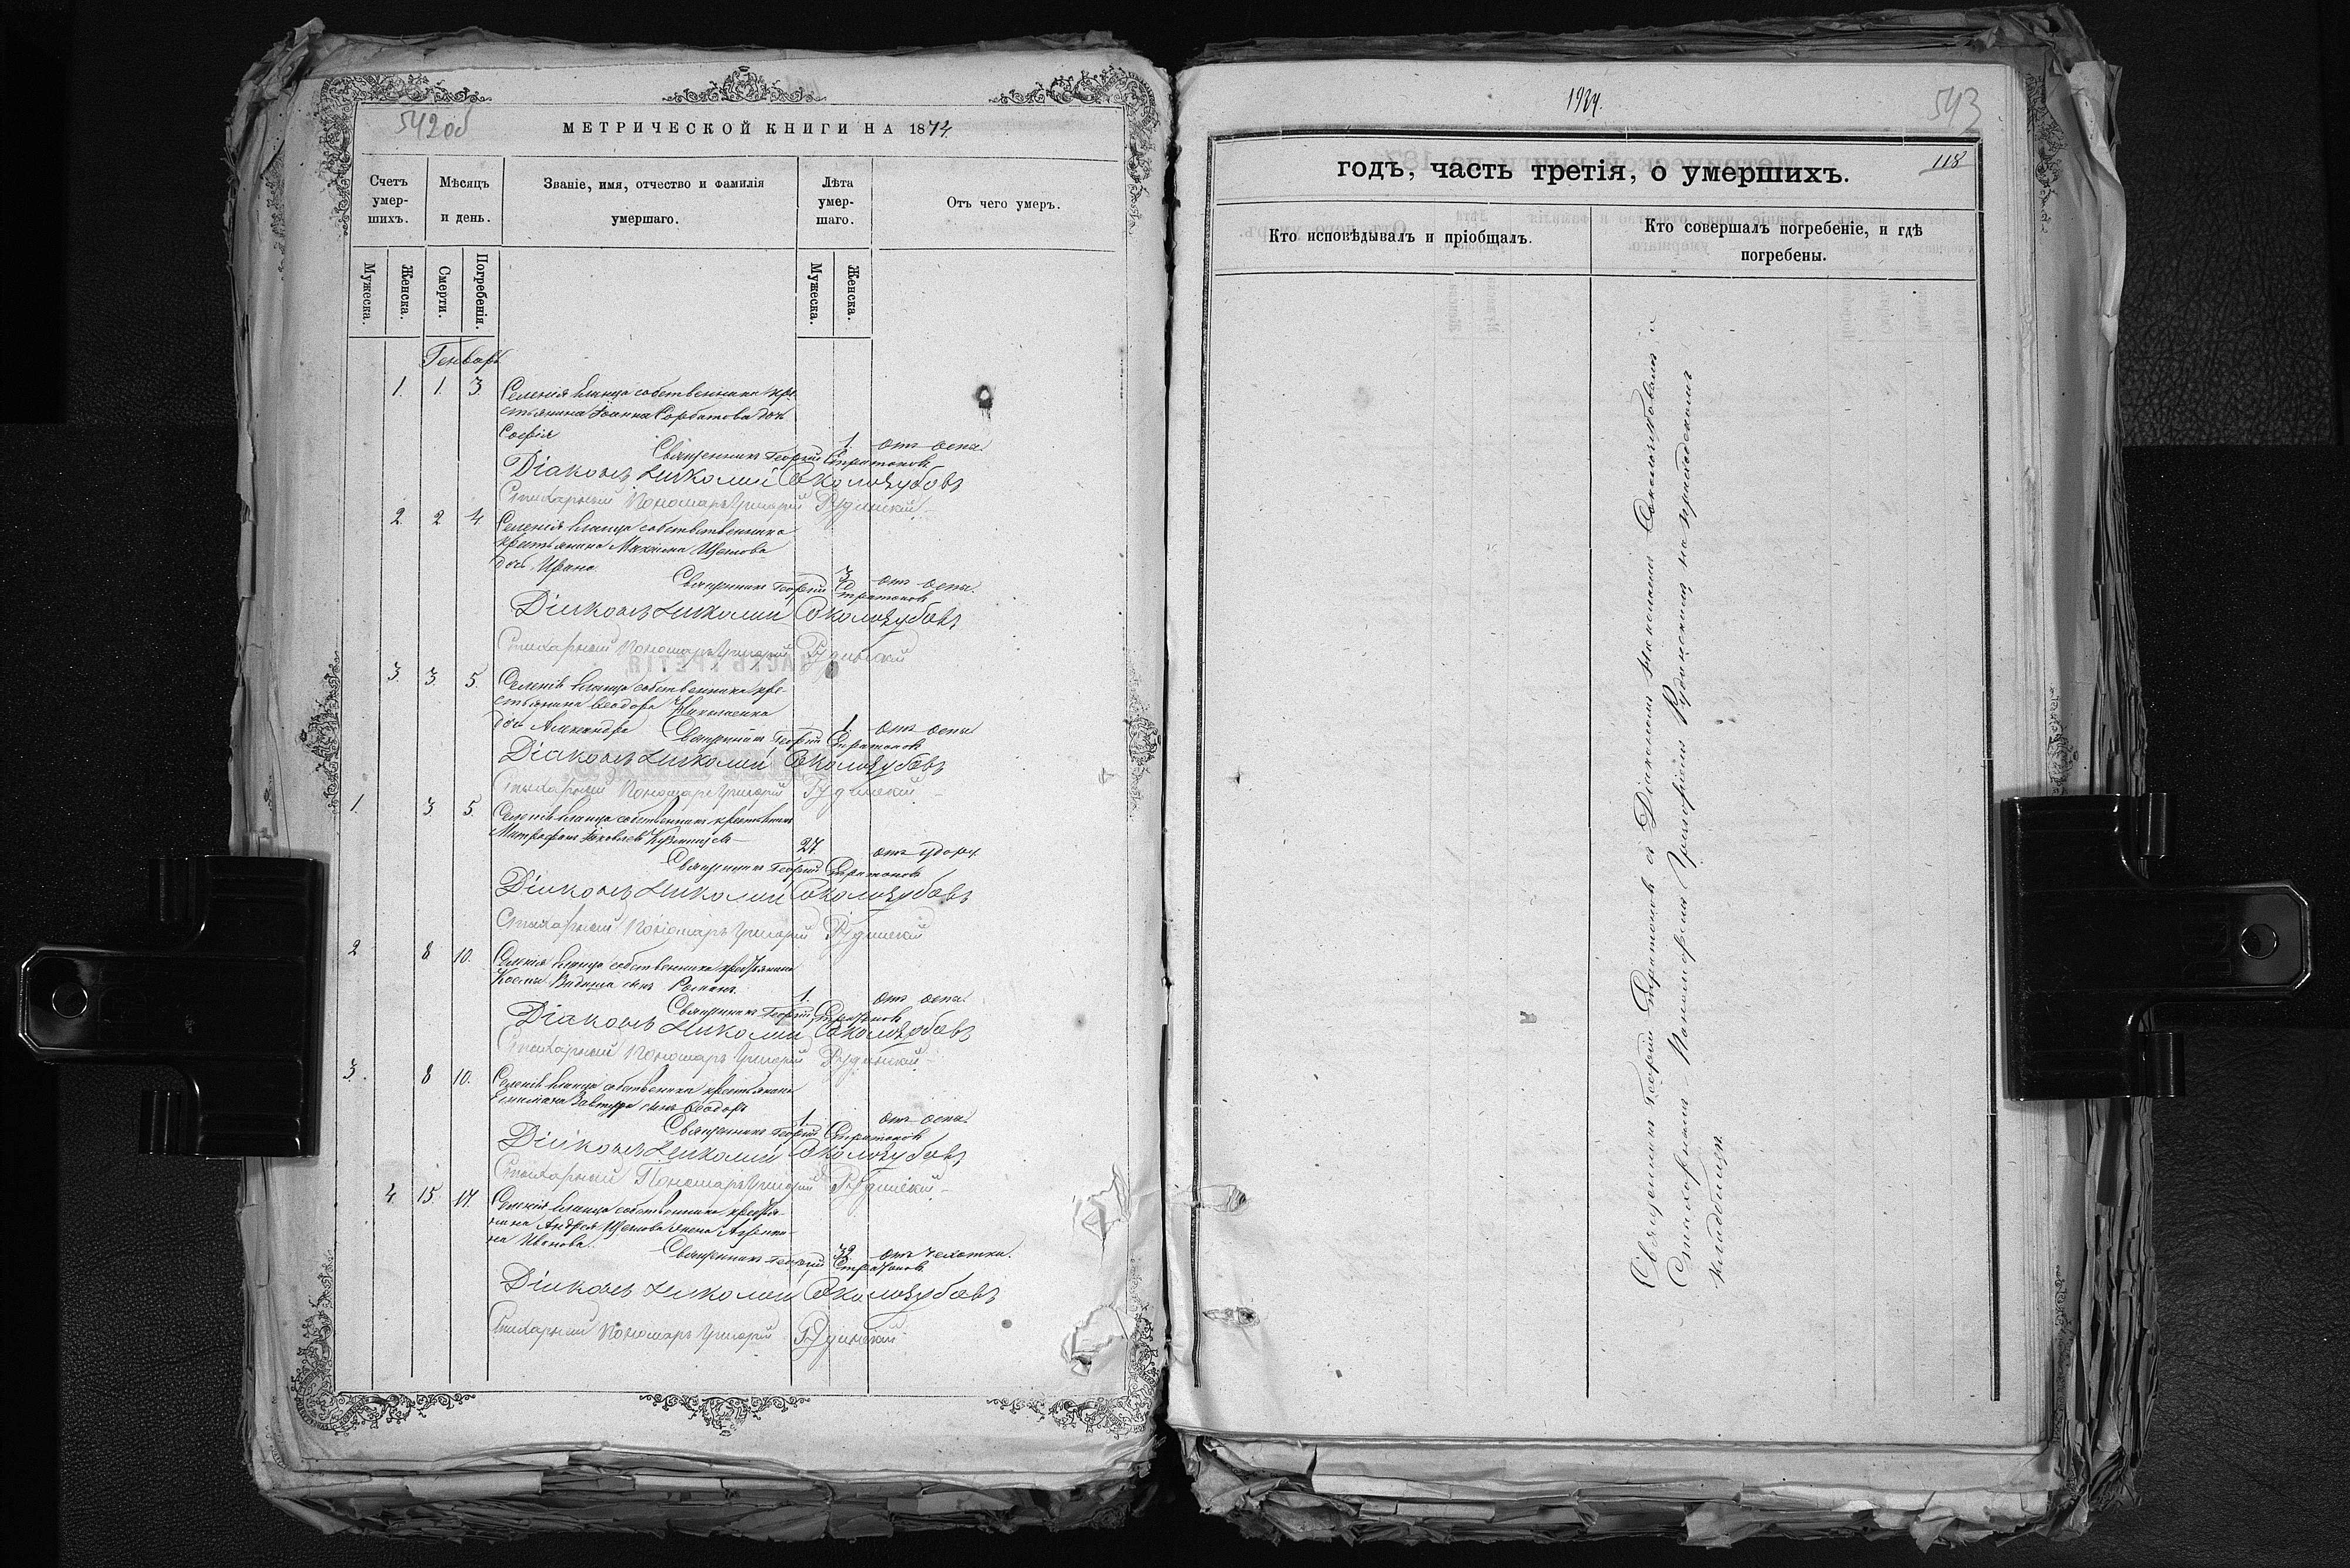 542об
МЕТРИЧЕСКОЙ КНИГИ НА 1874
Счетъ умер-шихъ.
Мѣсяцъ и день.
Званіе, имя, отчество и фамилія умершаго.
Лѣта умер-шаго.
Отъ чего умеръ.
Мужеска.
Женска.
Смерти.
Погребенія.
Мужеска.
Женска.
Генварь
1. 1. 3. Селенія собственника кре-
стьянина Іоанна Горбатова дочь
Софія 1. отъ оспы.
Священникъ Георгій Стратоновъ
Діаконъ Николай Соколозубовъ
Стихарный Пономарь Григорій Рудинскій
2. 2 4 Селенія собственника
крестьянина Максима Щетова
дочь Ирина 3 отъ оспы.
Священникъ Георгій Стратоновъ
Діаконъ Николай Соколозубовъ
Стихарный Пономарь Григорій Рудинскій
3. 3. 5. Селенія собственника кре-
стьянина Ѳеодора
дочь Александра 1. отъ оспы
Священникъ Георгій Стратоновъ
Діаконъ Николай Соколозубовъ
Стихарный Пономарь Григорій Рудинскій
1. 3. 5. Селенія собственникъ крестьянинъ
Митрофанъ Яковлевъ Кузнецовъ 27. отъ
Священникъ Георгій Стратоновъ
Діаконъ Николай Соколозубовъ
Стихарный Пономарь Григорій Рудинскій
2 8 10. Селенія собственника крестьянина
Космы сынъ Романъ. 1. отъ оспы.
Священникъ Георгій Стратоновъ
Діаконъ Николай Соколозубовъ
Стихарный Пономарь Григорій Рудинскій
3. 8 10. Селенія собственника крестьянина
сынъ Ѳеодоръ 1. отъ оспы.
Священникъ Георгій Стратоновъ
Діаконъ Николай Соколозубовъ
Стихарный Пономарь Григорій Рудинскій
4 15. 17. Селенія собственника крестья-
нина Андрея Щетова жена
Иванова. 32. отъ чахотки.
Священникъ Георгій Стратоновъ.
Діаконъ Николай Соколозубовъ
Стихарный Пономарь Григорій Рудинскій
543
118
годъ, часть третія, о умершихъ.
Кто исповѣдывалъ и пріобщалъ.
Кто совершалъ погребеніе, и гдѣ погребены.
Священникъ Георгій Стратоновъ съ Діакономъ Николаемъ Соколозубовымъ и
Стихарнымъ Пономаремъ Григоріемъ Рудинскимъ на приходскомъ
кладбищѣ